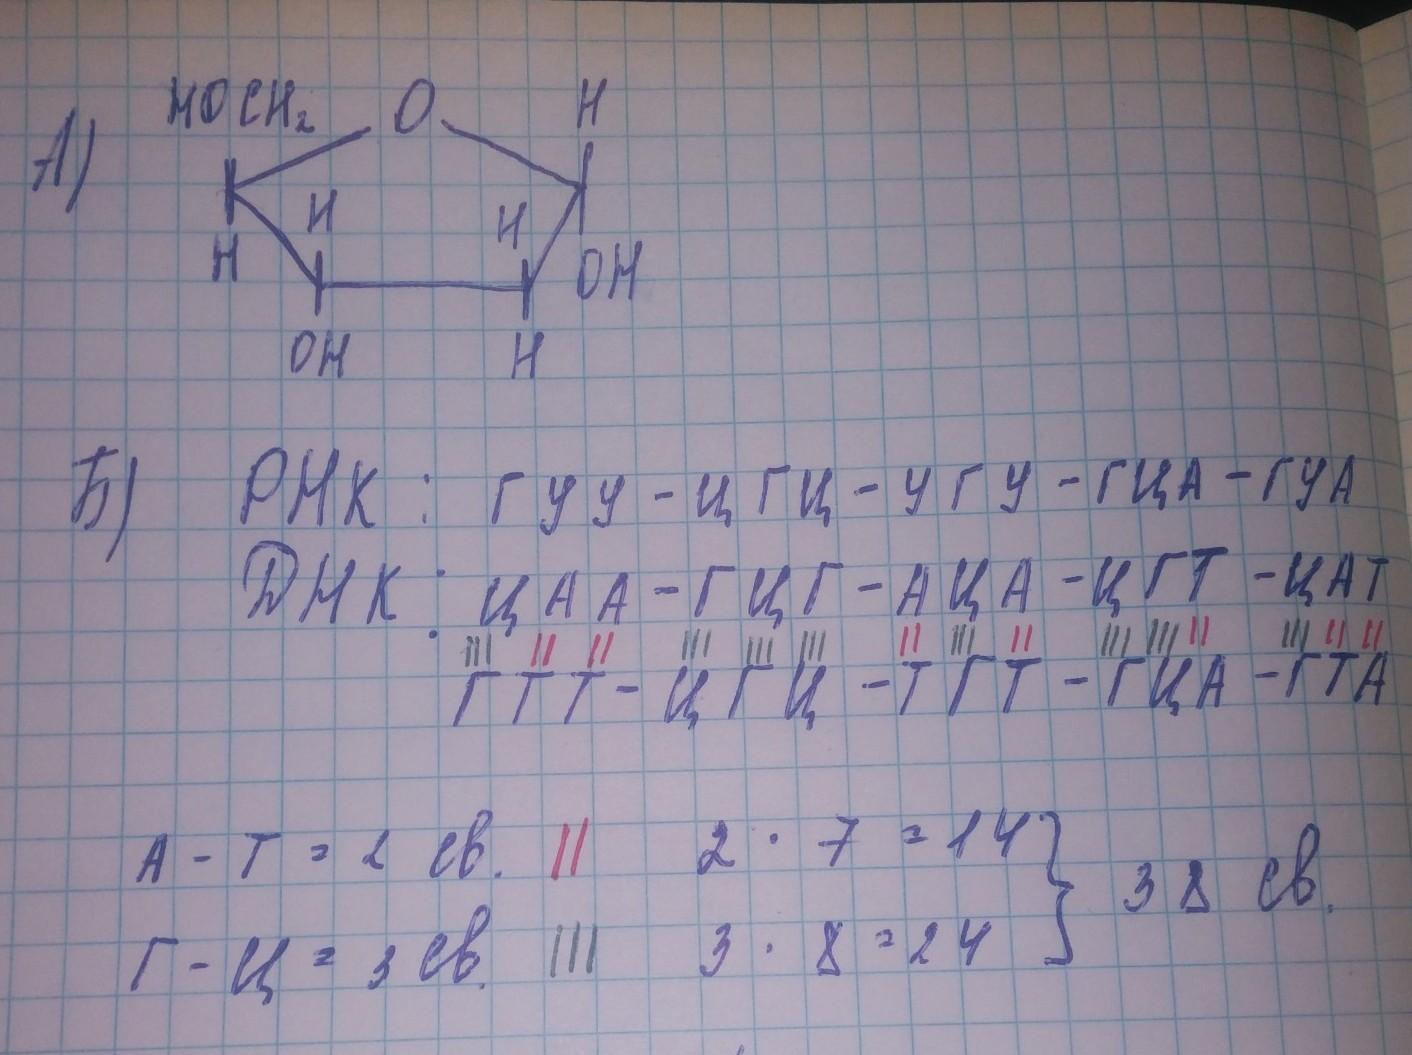 А)
HOCH₂ O H
H H
H OH
OH H
Б) РНК : ГУУ - ЦГЦ - УГУ - ГЦА - ГУА
ДНК : ЦАА - ГЦГ - АЦА - ЦГТ - ЦАТ
ГТТ - ЦГЦ - ТГТ - ГЦА - ГТА
А - Т = 2 св. || 2 · 7 = 14 } 38 св.
Г - Ц = 3 св. ||| 3 · 8 = 24